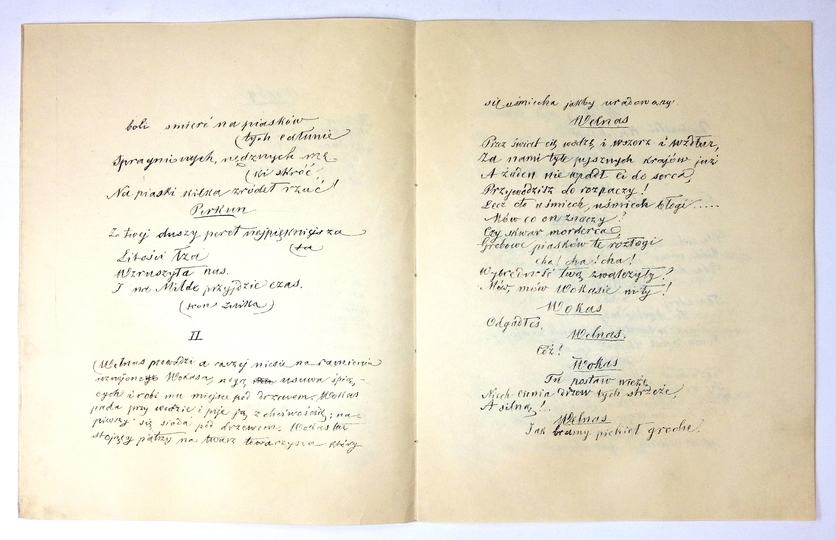 boli śmierć na piasków
(tych całunie
Spragnionych, nędznych mę-
(ki skróć
Na piaski kilka źródeł rzuć!
Perkun
Za twej duszy pereł najpiękniejsza
Litości łza
Wzruszyła nas.
I na Mildę przyjdzie czas.
II.
(Welnas prowadzi a raczej niesie na ramieniu
Wokasa, nogą usuwa śpią-
cych i robi mu miejsce pod drzewem. Wokas
pada przy wodzie i pije ją z chciwością; na-
pиwszy się siada pod drzewem. Wokasa
stojący patrzy na twarz towarzysza który
się uśmiecha jakby uradowany
Welnas
Przez świat cię wodzę i wszerz i wzdłuż,
Za nami tyle pysznych krajów już
A żaden nie wpadł ci do serca,
Przywodzisz do rozpaczy!
Lecz cło uśmiech, uśmiech błogi.....
Mów co on znaczy?
Czy skwar morderca
Grobowe piasków te rozłogi
cha! cha! cha!
Wybredność twą zwalczyły?
Mów, mów Wokasie miły!
Wokas
Odgadłeś.
Welnas.
Cóż!
Wokas
Tu postaw wieżę
Niech cienia drzew tych strzeże,
A silną!..
Welnas
Jak bramy piekieł grodu?